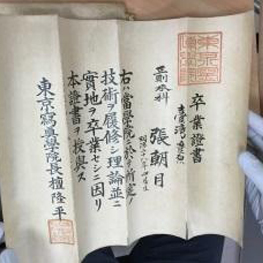 卒業證書
臺灣
本科
張朝目
右ハ當學院ニ於テ所定ノ
技術ヲ履修シ理論並ニ
實地ヲ卒業セシニ因リ
本證書ヲ授與ス
東京寫真學院長檀隆平